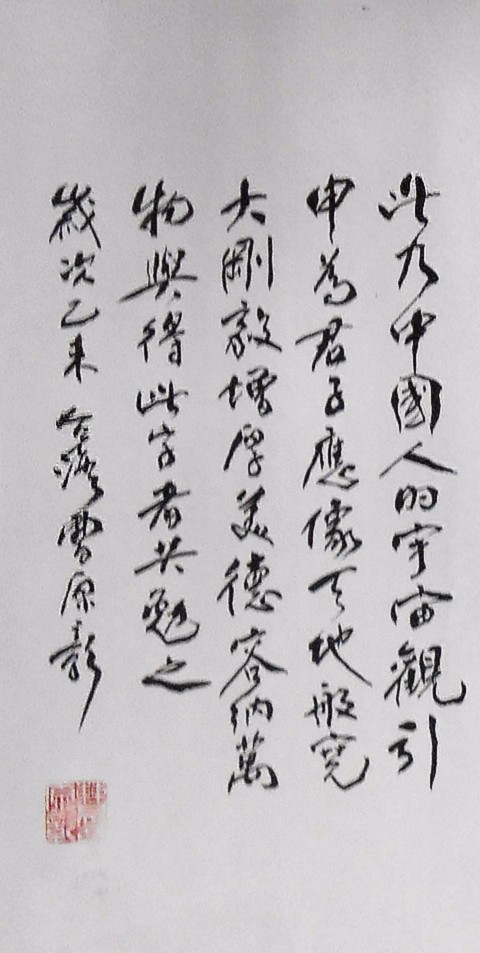 此乃中國人的宇宙觀引
申為君子應像天地般寬
大剛毅增厚美德容納萬
物與得此字者共勉之
歲次乙未 曹原